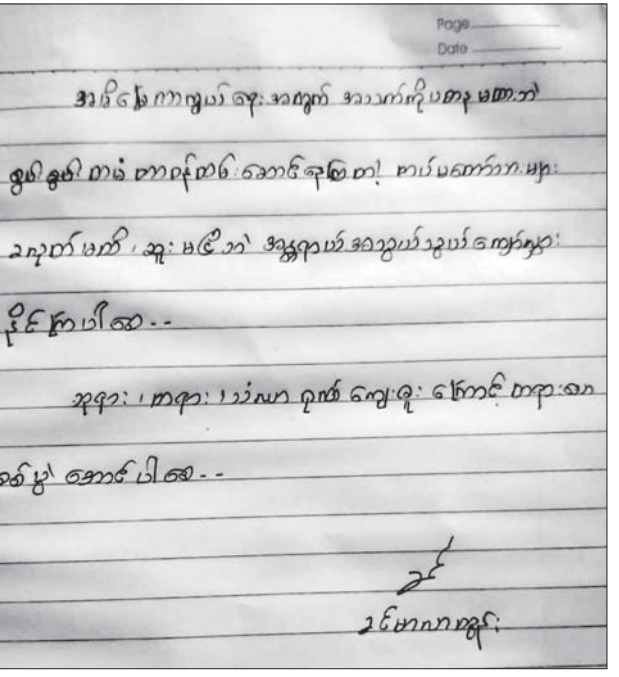 Page
Date
အမိမြေကာကွယ်ရေးအတွက် အသက်ကိုပဓာနမထားဘဲ
စွယ်စွယ်တမံ တာဝန်ထမ်းဆောင်နေကြတဲ့ တပ်မတော်သားများ
ခလုတ်မထိ၊ ဆူးမငြိဘဲ အန္တရာယ်အသွယ်သွယ်ကျော်လွှား
နိုင်ကြပါစေ--
ဘုရား၊ တရား၊ သံဃာ ဂုဏ်ကျေးဇူးကြောင့် တရားသော
စစ်ပွဲ အောင်ပါစေ--
ခင်
ခင်မာလာထွန်း